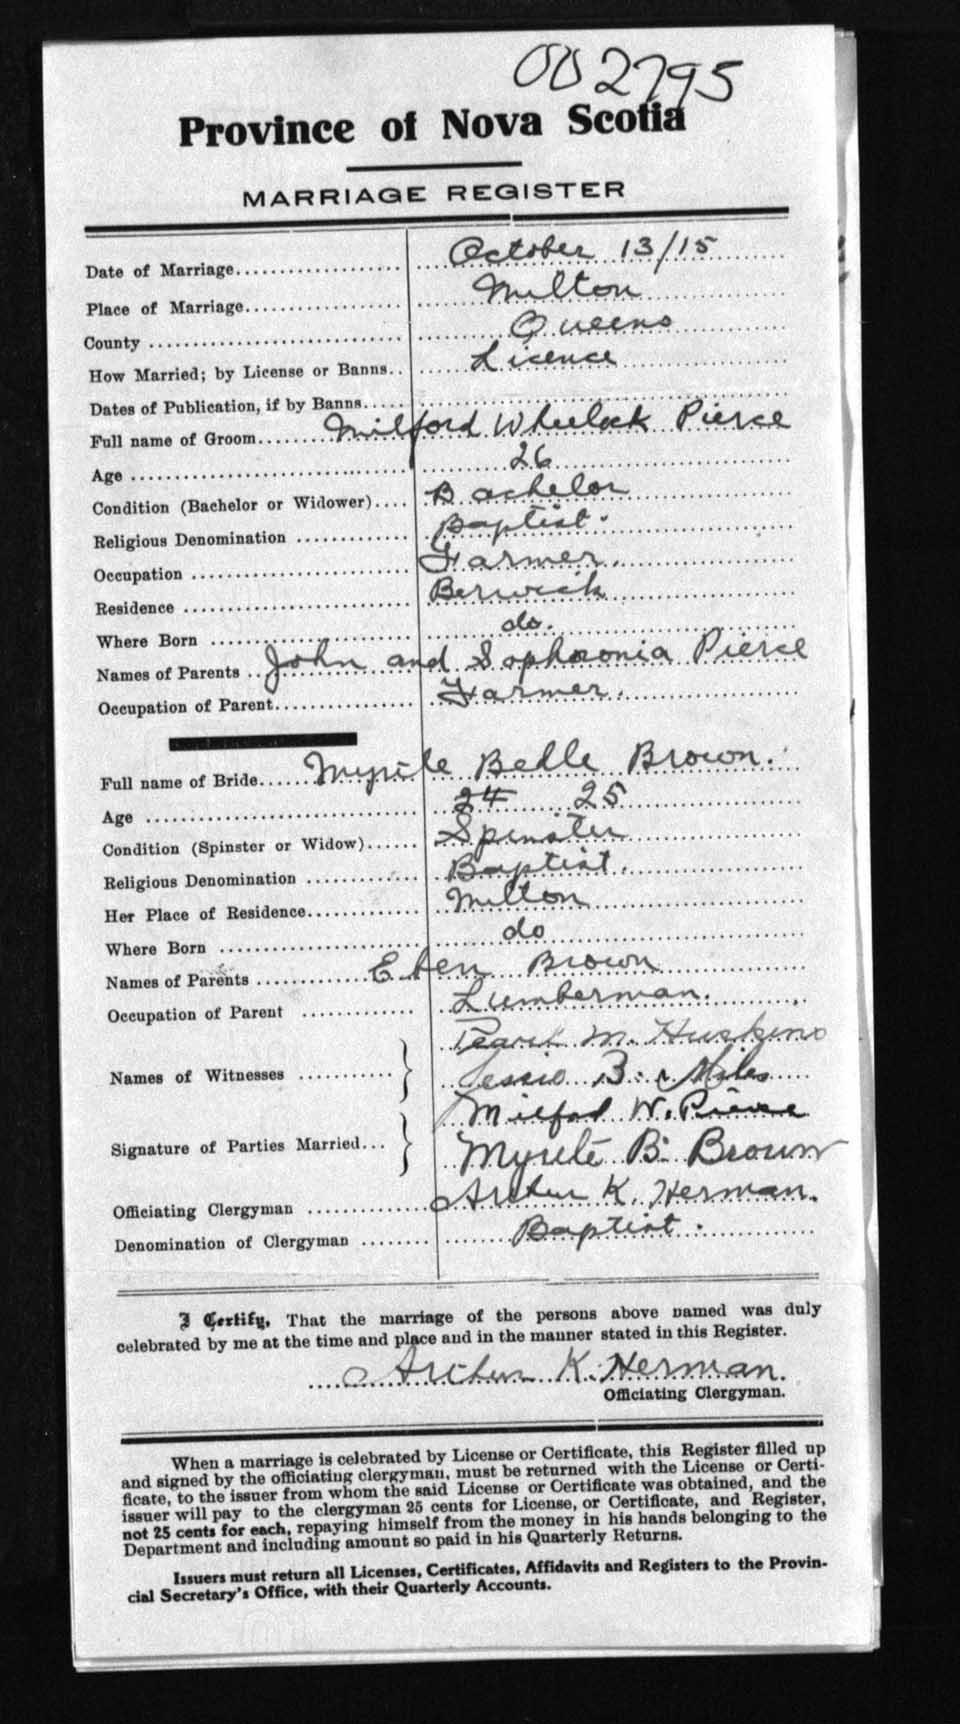 002795
Province of Nova Scotia
MARRIAGE REGISTER
Date of Marriage.................... October 13/15
Place of Marriage.................... Milton
County .................... Queens
How Married; by License or Banns.. Licence
Dates of Publication, if by Banns....
Full name of Groom........ Milford Wheelock Pierce
Age .................... 26
Condition (Bachelor or Widower).... Bachelor
Religious Denomination ............. Baptist.
Occupation .................... Farmer.
Residence .................... Berwick
Where Born .................... do.
Names of Parents .. John and Sophronia Pierce
Occupation of Parent................ Farmer.
Full name of Bride...... Myrtle Bedle Brown.
Age .................... 24 25
Condition (Spinster or Widow)...... Spinster
Religious Denomination ............ Baptist.
Her Place of Residence............. Milton
Where Born .................... do
Names of Parents ............ Eben Brown
Occupation of Parent ............. Lumberman.
Names of Witnesses ........... } Pearl M. Huskins
Jessie B. Miles
Signature of Parties Married... } Milford W. Pierce
Myrtle B. Brown
Officiating Clergyman ............. Arthur K. Herman.
Denomination of Clergyman ........ Baptist.
I Certify, That the marriage of the persons above named was duly
celebrated by me at the time and place and in the manner stated in this Register.
.... Arthur K. Herman.
Officiating Clergyman.
When a marriage is celebrated by License or Certificate, this Register filled up
and signed by the officiating clergyman, must be returned with the License or Certi-
ficate, to the issuer from whom the said License or Certificate was obtained, and the
issuer will pay to the clergyman 25 cents for License, or Certificate, and Register,
not 25 cents for each, repaying himself from the money in his hands belonging to the
Department and including amount so paid in his Quarterly Returns.
Issuers must return all Licenses, Certificates, Affidavits and Registers to the Provin-
cial Secretary's Office, with their Quarterly Accounts.